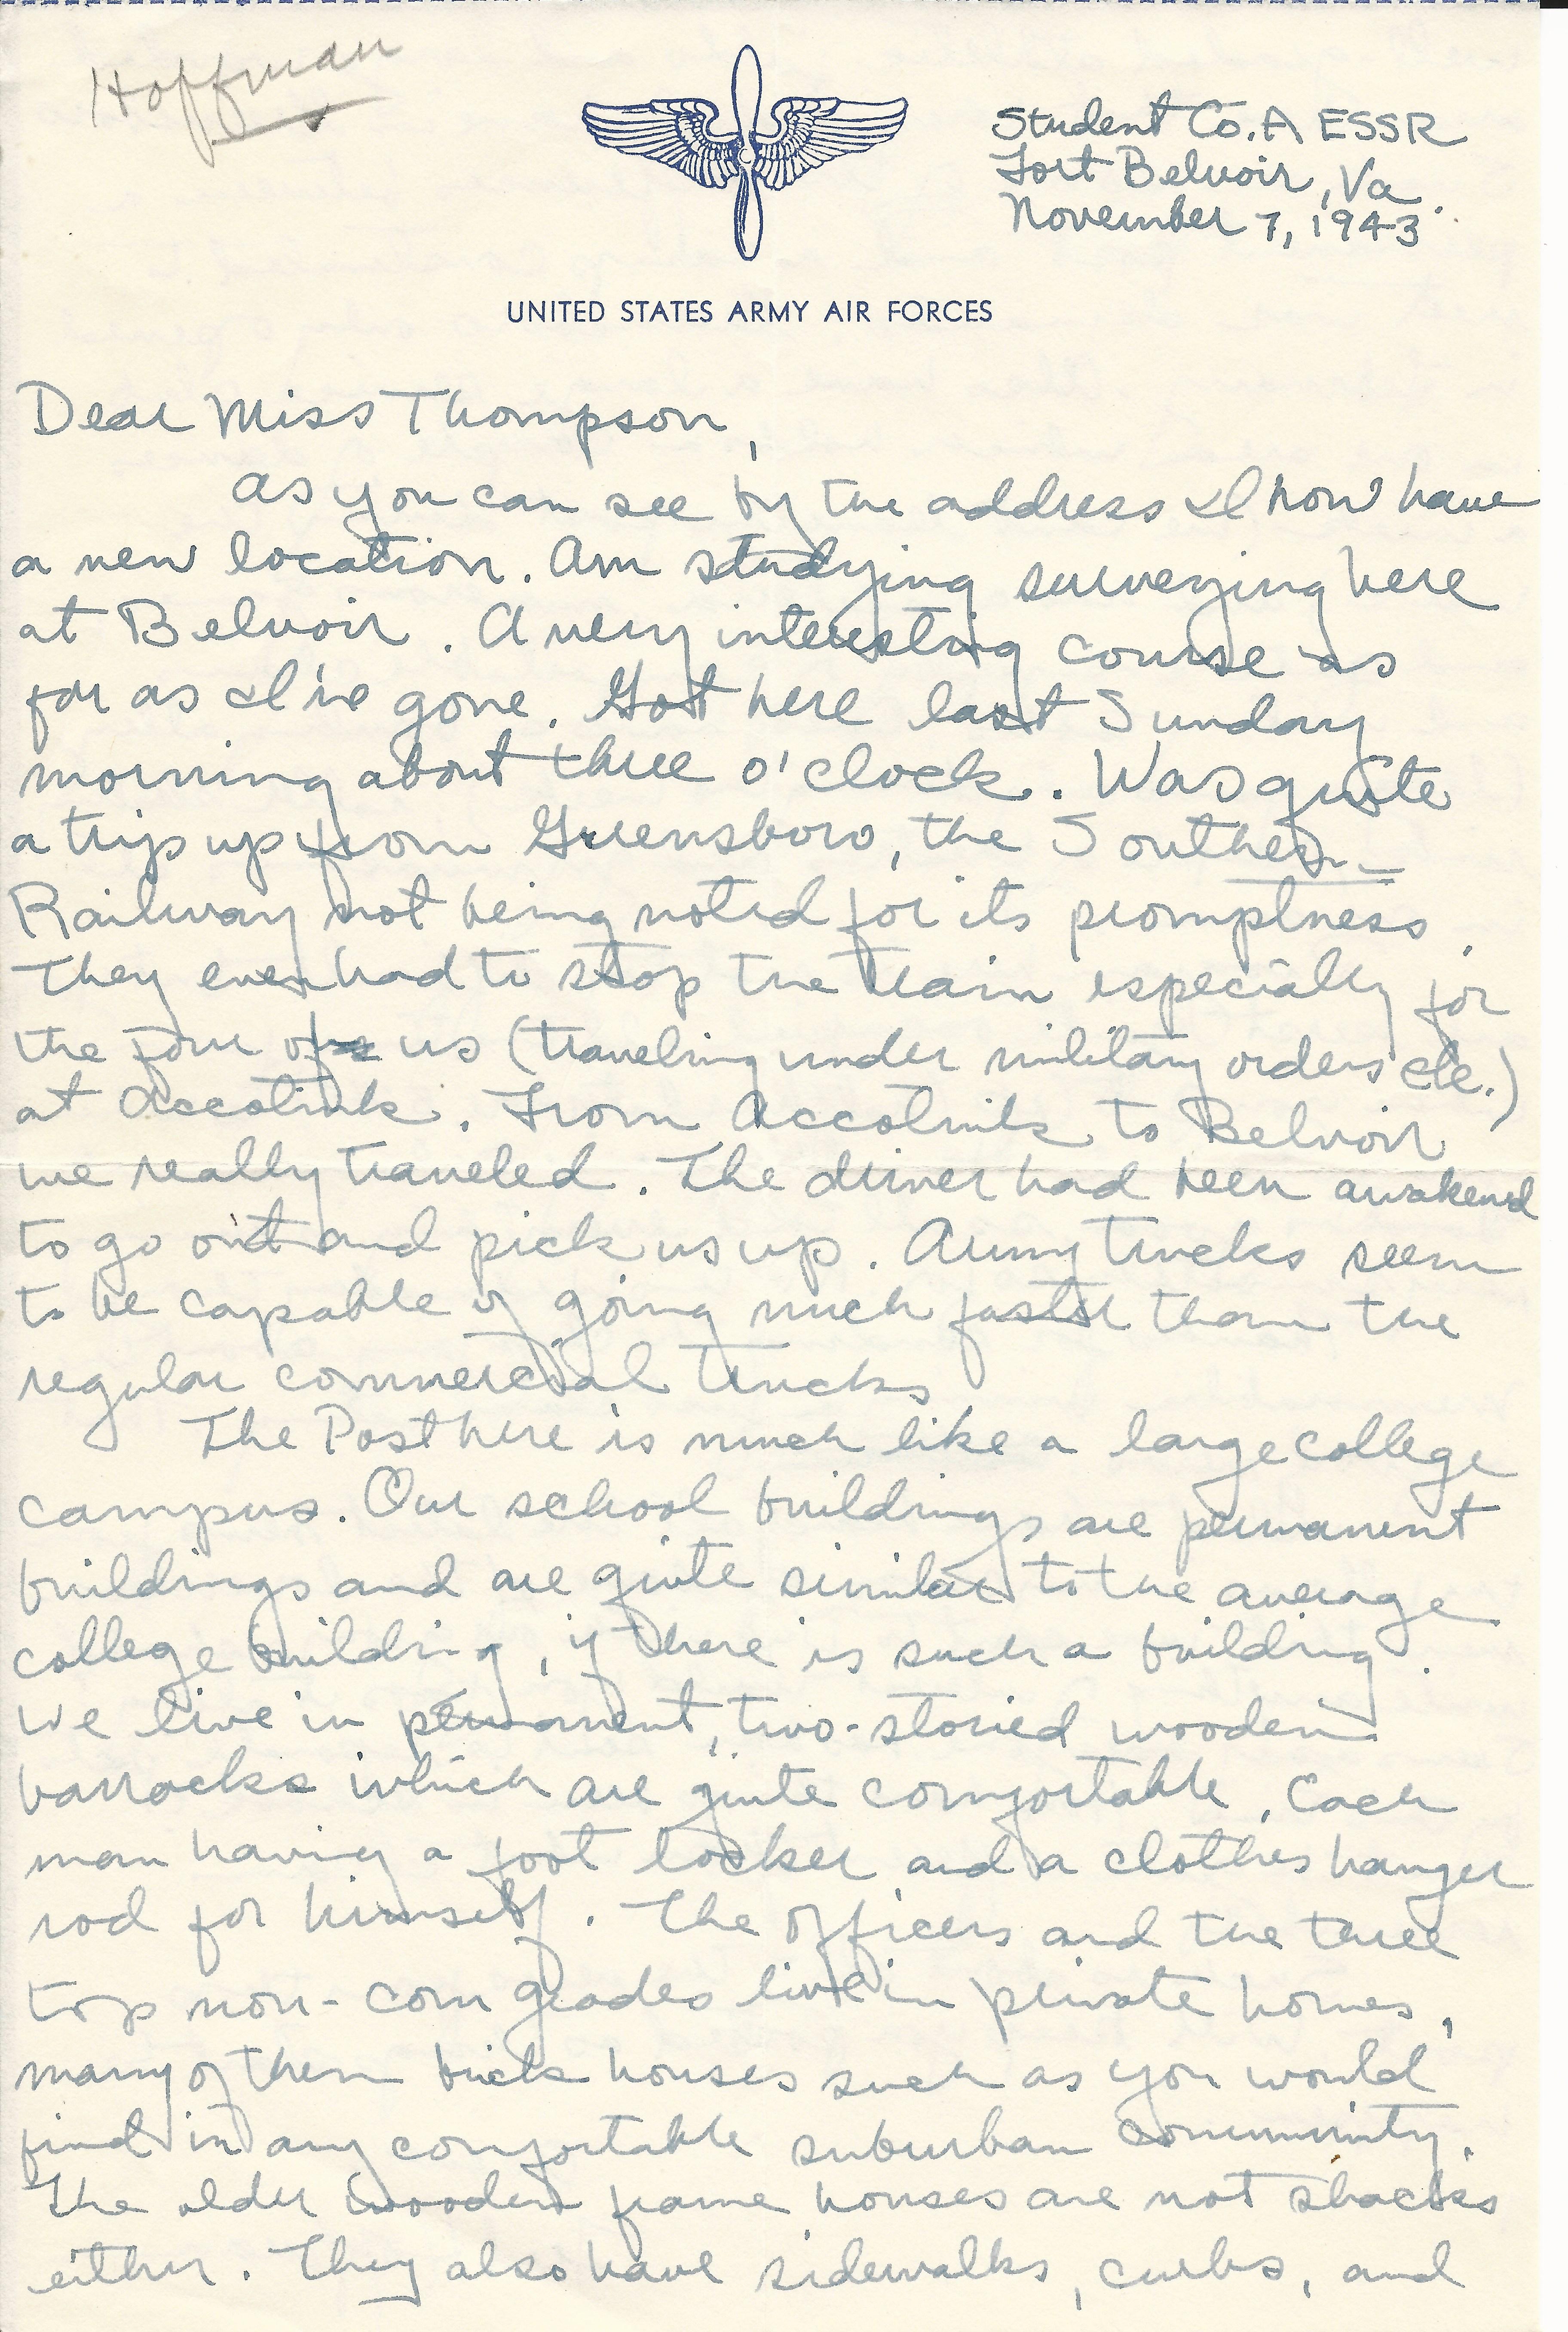 Hoffman
Student Co. A ESSR
Fort Belvoir, Va.
November 7, 1943
UNITED STATES ARMY AIR FORCES
Dear Miss Thompson,
As you can see by the address I now have
a new location. Am studying surveying here
at Belvoir. A very interesting course as
far as I've gone. Got here last Sunday
morning about three o'clock. Was quite
a trip up from Greensboro, the Southern
Railway not being noted for its promptness.
They even had to stop the train especially for
the four of us (traveling under military orders etc.)
at Accotink. From Accotink to Belvoir
we really traveled. The driver had been awakened
to go out and pick us up. Army trucks seem
to be capable of going much faster than the
regular commercial trucks
The Post here is much like a large college
campus. Our school buildings are permanent
buildings and are quite similar to the average
college building, if there is such a building.
We live in permanent, two-storied wooden
barracks which are quite comfortable. Each
man having a foot locker and a clothes hanger
rod for himself. The officers and the three
top non-com grades live in private homes,
many of them brick houses such as you would
find in any comfortable suburban community.
The older wooden frame houses are not shacks
either. They also have sidewalks, curbs, and